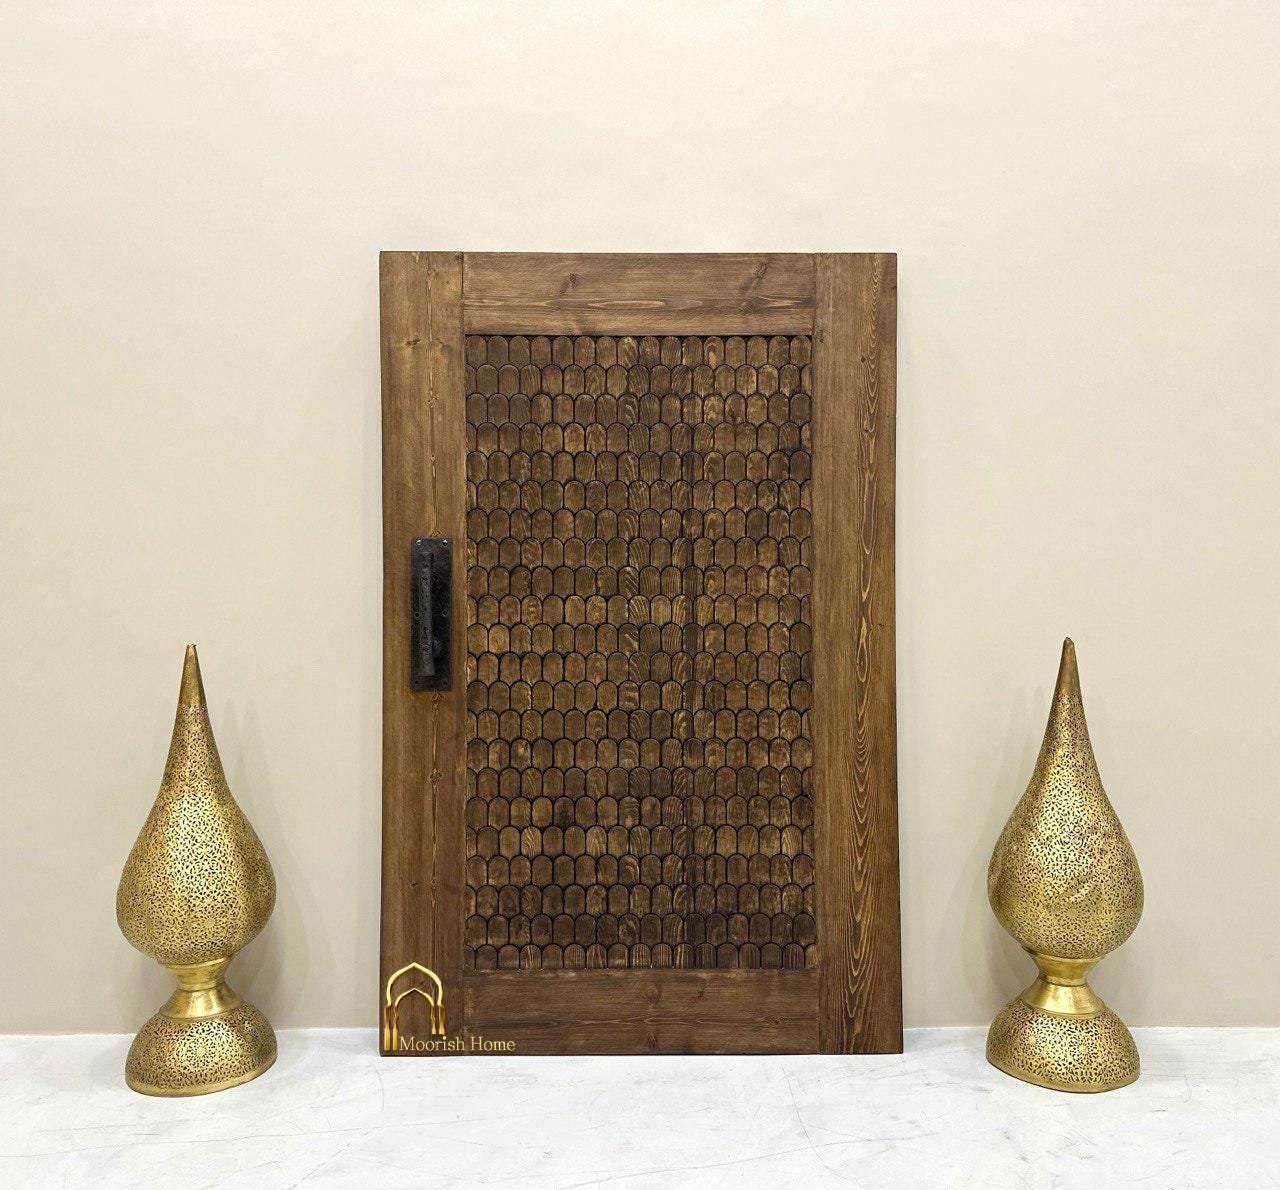 Moorish Home